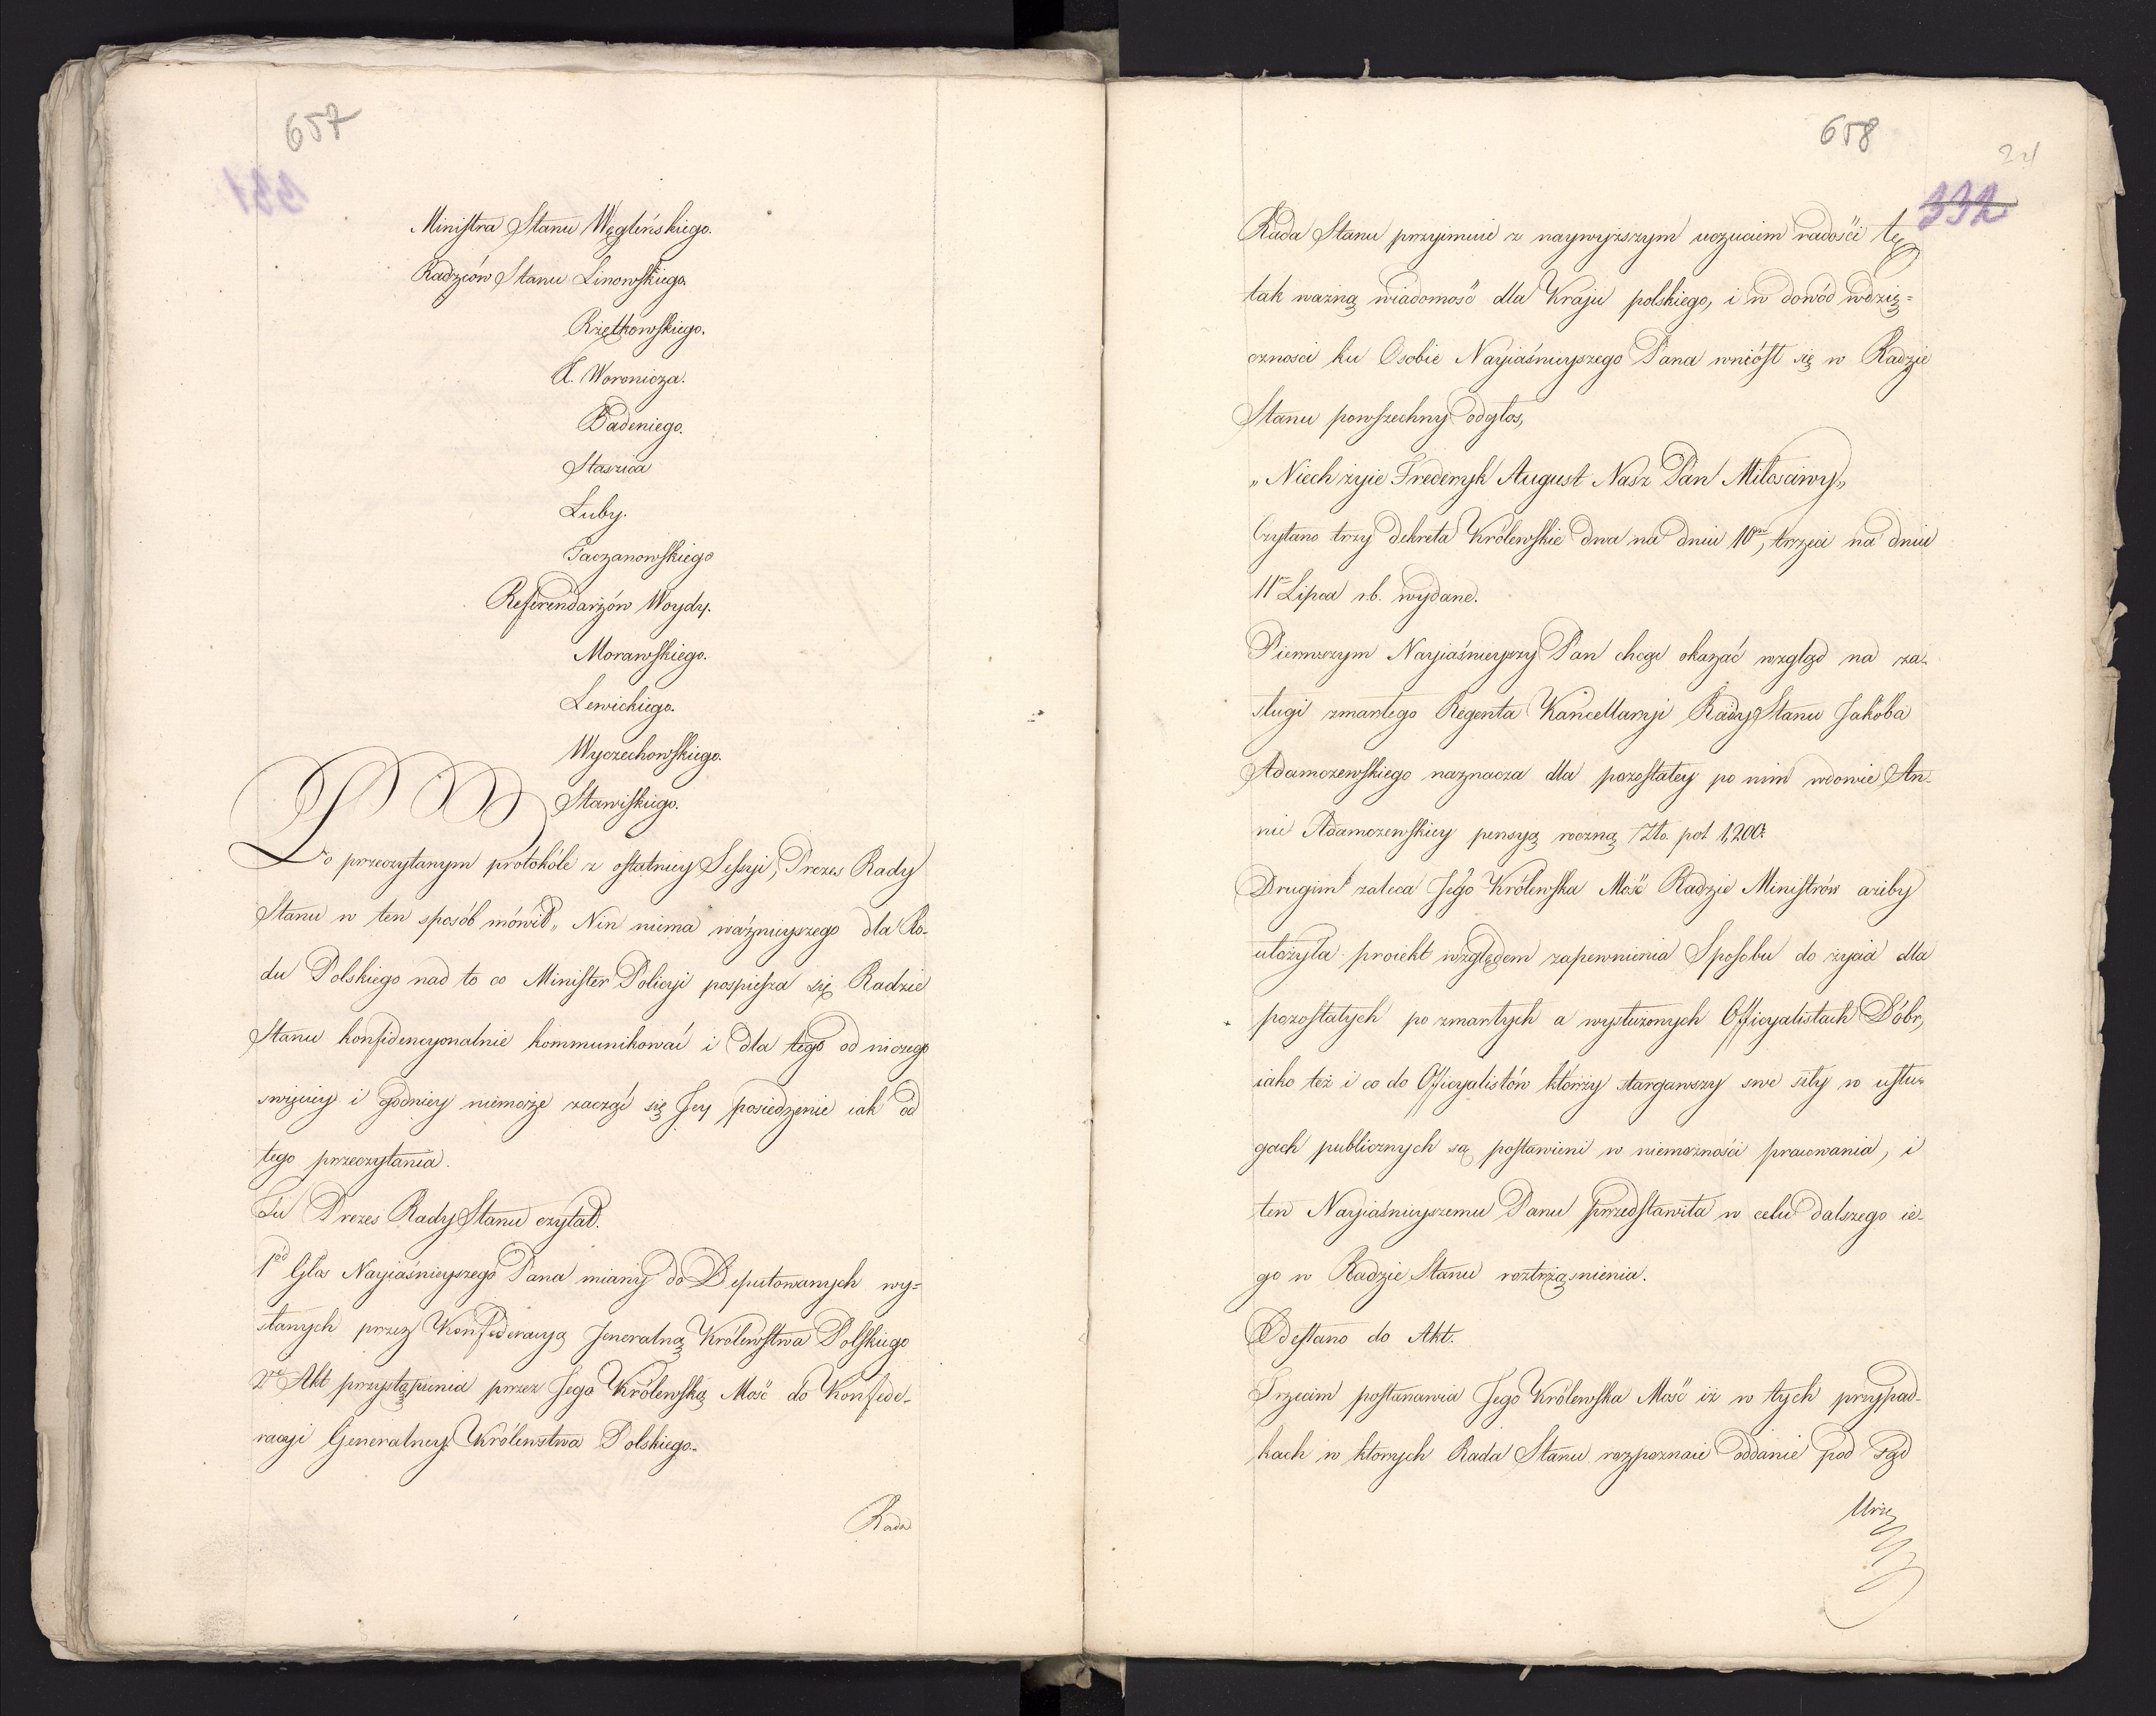 657
331
Ministra Stanu Węgleńskiego.
Radzców Stanu Linowskiego.
Rzętkowskiego.
X. Woronicza.
Badeniego.
Staszica
Łuby.
Taczanowskiego
Referendarzów Woydy.
Morawskiego.
Lewickiego.
Wyczechowskiego.
Stawiskiego.
Po przeczytanym protokóle z ostatniey Sessyi, Prezes Rady
Stanu w ten sposób mówił „ Nin niema ważnieyszego dla Ro-
du Polskiego nad to co Minister Policyi pospiesza się Radzie
Stanu konfidencyonalnie kommunikować i dla tego od niczego
i godniey niemoże zacząć się Jey posiedzenie iak od
tego przeczytania.
Tu Prezes Rady Stanu czytał.
1od Głos Nayiaśnieyszego Pana miany do Deputowanych wy=
słanych przez Konfederacyą Jeneralną Królewstwa Polskiego
2re Akt przystąpienia przez Jego Królewską Mość do Konfede-
racyi Generalney Królewstwa Polskiego.
Rada
658
24
332
Rada Stanu przyimuie z naywyższym uczuciem radości tę
tak ważną wiadomość dla Kraju polskiego, i w dowód wdzię=
czności ku Osobie Nayiaśnieyszego Pana wniósł się w Radzie
Stanu powszechny odgłos,
„Niech żyie Frederyk August Nasz Pan Miłosciwy„
Czytano trzy dekreta Królewskie dwa na dniu 10m, trzeci na dniu
11m Lipca r.b. wydane.
Pierwszym Nayiaśnieyszy Pan chcąc okazać wzgląd na za-
sługi zmarłego Regenta Kancellaryi Rady Stanu Jakóba
Adamczewskiego naznacza dla pozostałey po nim wdowie An-
nie Adamczewskiey pensyą roczną Zło. pol. 1,200.
Drugim zaleca Jego Królewska Mość Radzie Ministrów ażeby
ułożyła proiekt względem zapewnienia Sposobu do życia dla
pozostałych po zmarłych a wysłużonych Officyalistach Dóbr,
iako też i co do Officyalistów którzy stargawszy swe siły w usłu-
gach publicznych są postawieni w niemożności pracowania, i
ten Nayiaśnieyszemu Panu przedstawiła w celu dalszego ie-
go w Radzie Stanu roztrząśnienia.
Odesłano do Akt.
Trzecim postanawia Jego Królewska Mość iż w tych przypad-
kach w których Rada Stanu rozpoznaie oddanie pod Sąd
Urzę